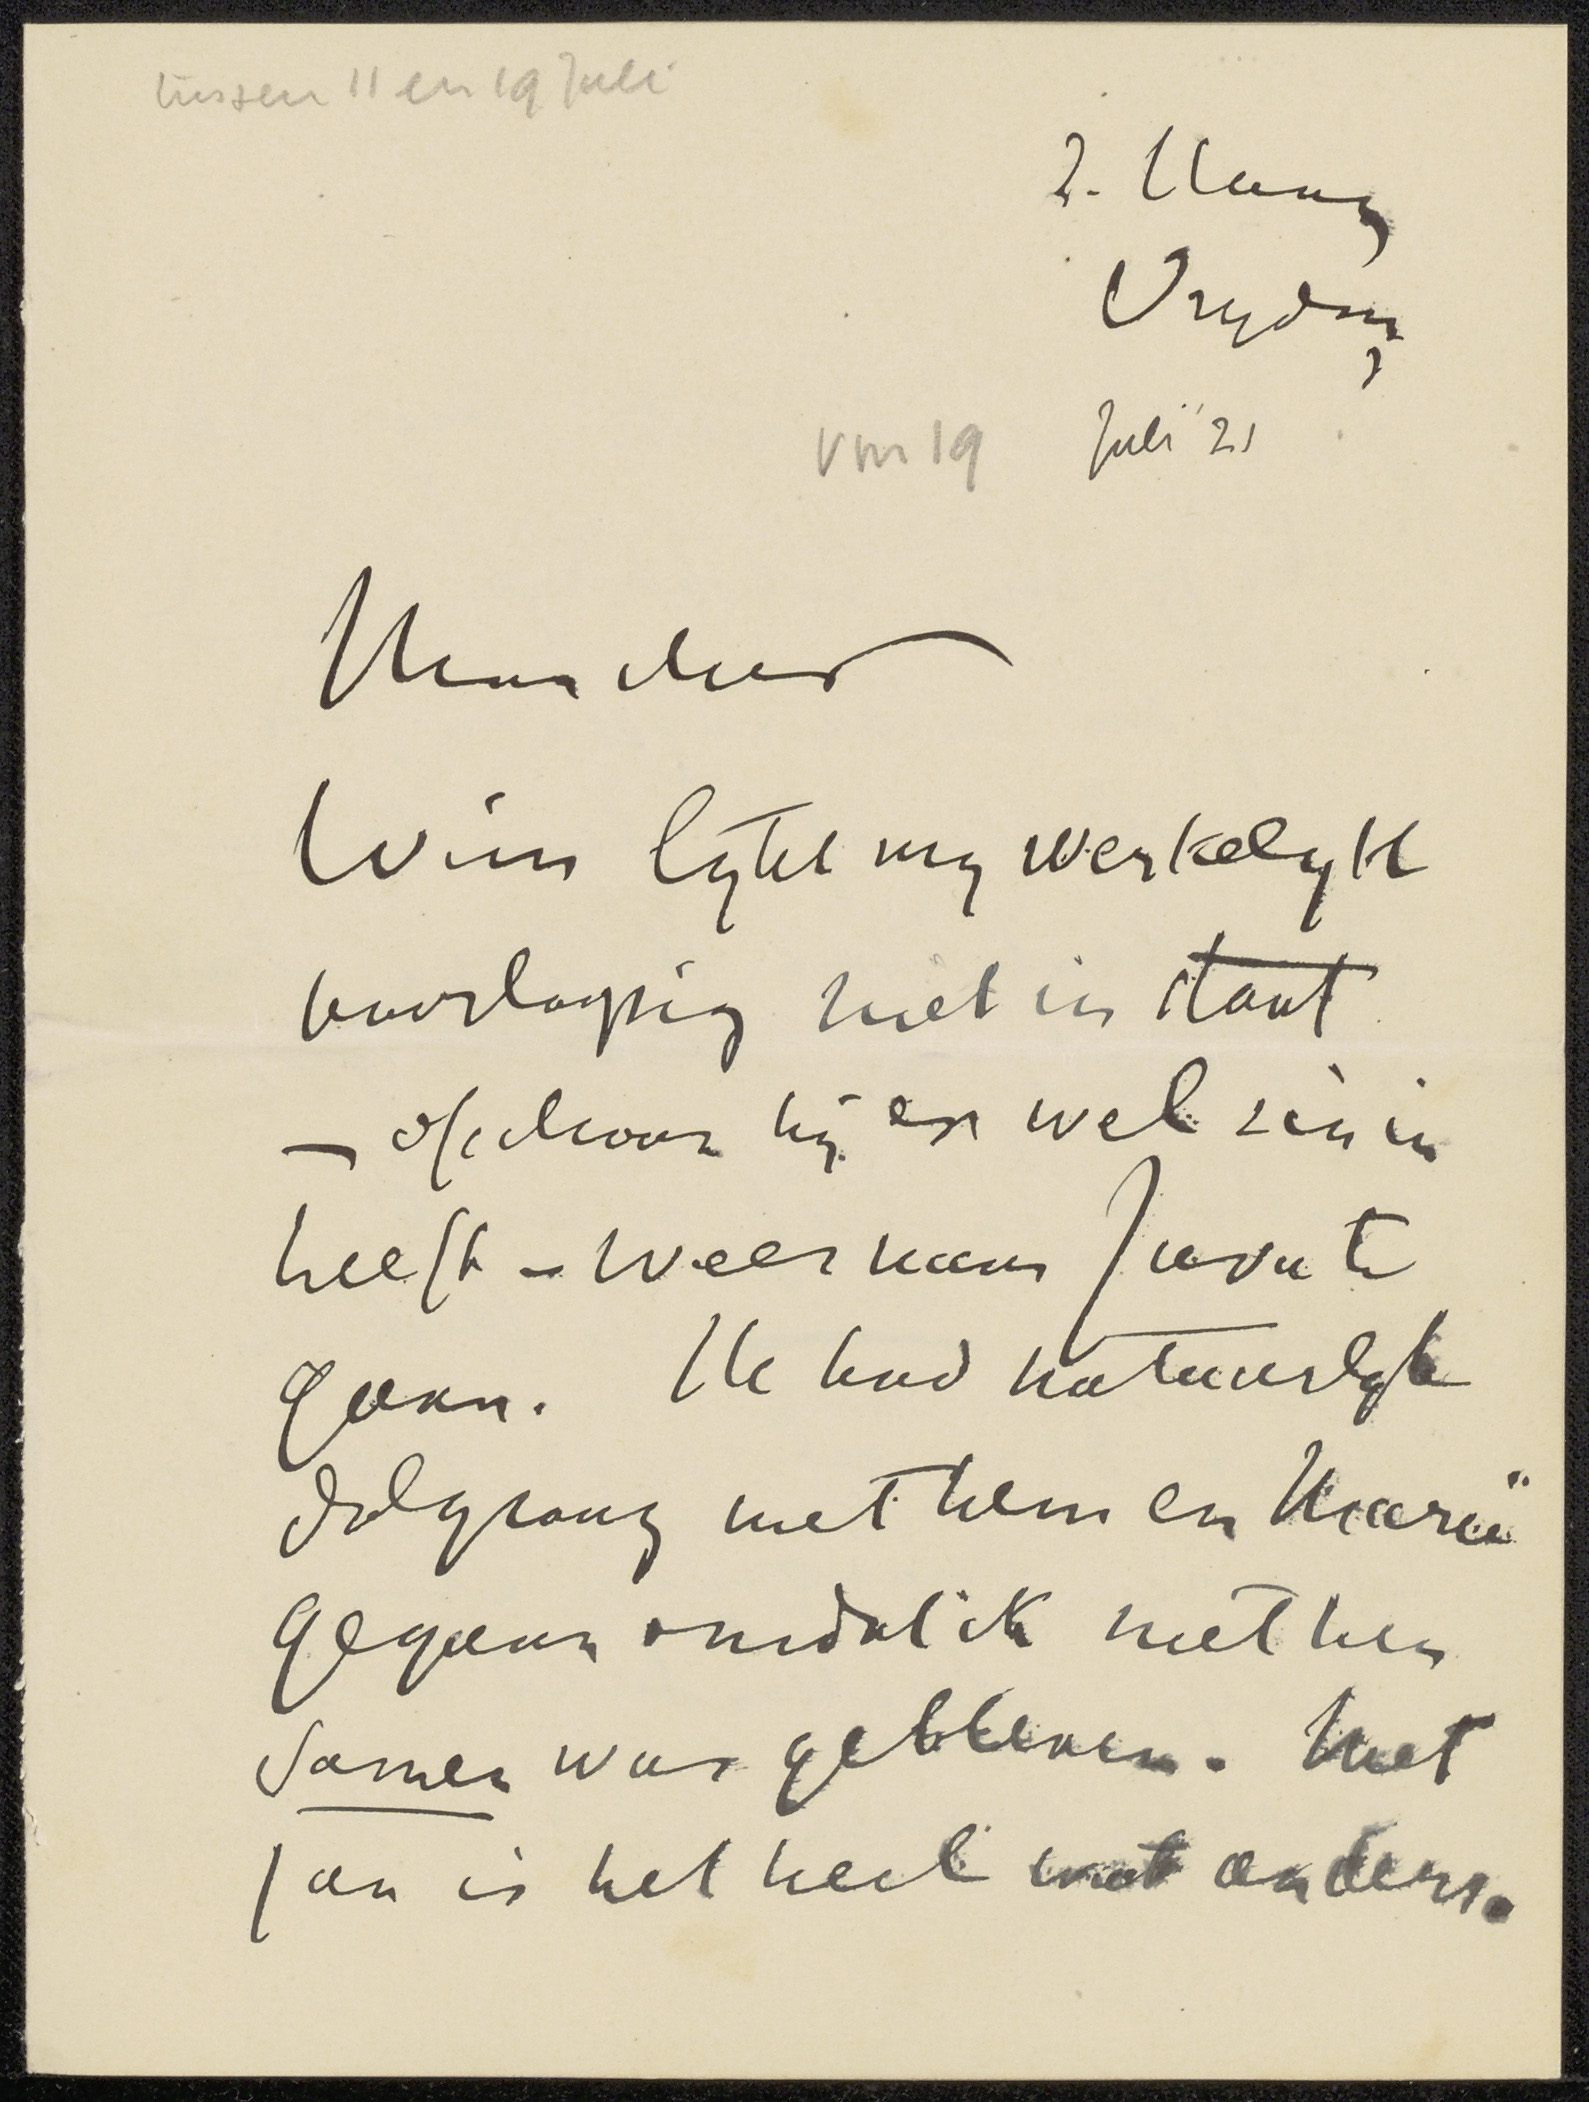 tussen 11 en 19 Juli
d. Haag
Vrydag
vm 19 Juli '21
Wim lykt my werkelyk
voorloopig niet in staat
– ofschoon hij er wel zin in
heeft – weer naar Java te
gaan. Ik had natuurlyk
dolgraag met hem en Marie
gegaan omdat ik met hen
samen was gebleven. Met
Jan is het heel wat anders.